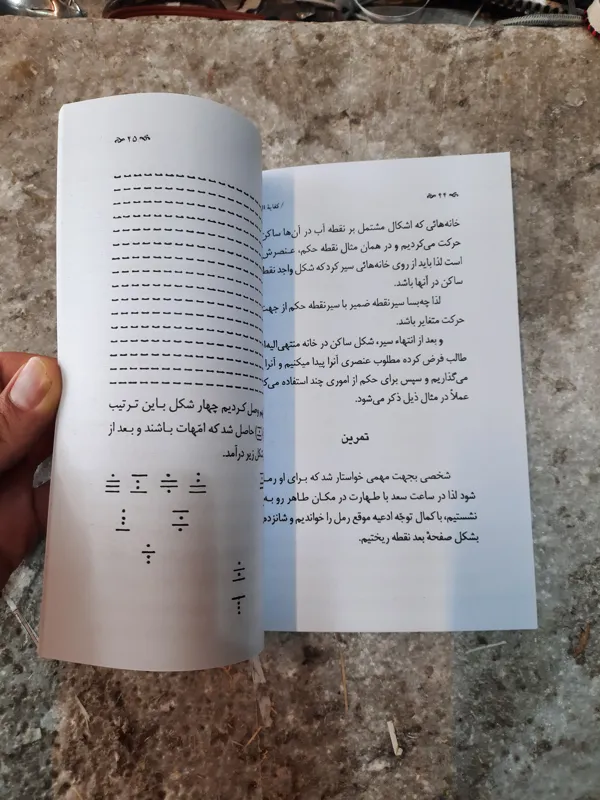 ۲۴
/ کفایة
خانه‌هائی که اشکال مشتمل بر نقطه آب در آن‌ها ساکن
حرکت می‌کردیم و در همان مثال نقطه حکم، عنصرش
است لذا باید از روی خانه‌هائی سیر کرد که شکل واجد نقطه
ساکن در آنها باشد.
لذا چه‌بسا سیر نقطه ضمیر با سیر نقطه حکم از جهت
حرکت متغایر باشد.
و بعد از انتهاء سیر، شکل ساکن در خانه منتهی‌الیه
طالب فرض کرده مطلوب عنصری آنرا پیدا میکنیم و آنرا
می‌گذاریم و سپس برای حکم از اموری چند استفاده
عملاً در مثال ذیل ذکر می‌شود.
تمرین
شخصی بجهت مهمی خواستار شد که برای او رمل
شود لذا در ساعت سعد با طهارت در مکان طاهر رو به
نشستیم، با کمال توجّه ادعیه موقع رمل را خواندیم و شانزده
بشکل صفحهٔ بعد نقطه ریختیم.
۲۵
وصل کردیم چهار شکل باین ترتیب
حاصل شد که امّهات باشند و بعد از
زیر درآمد.